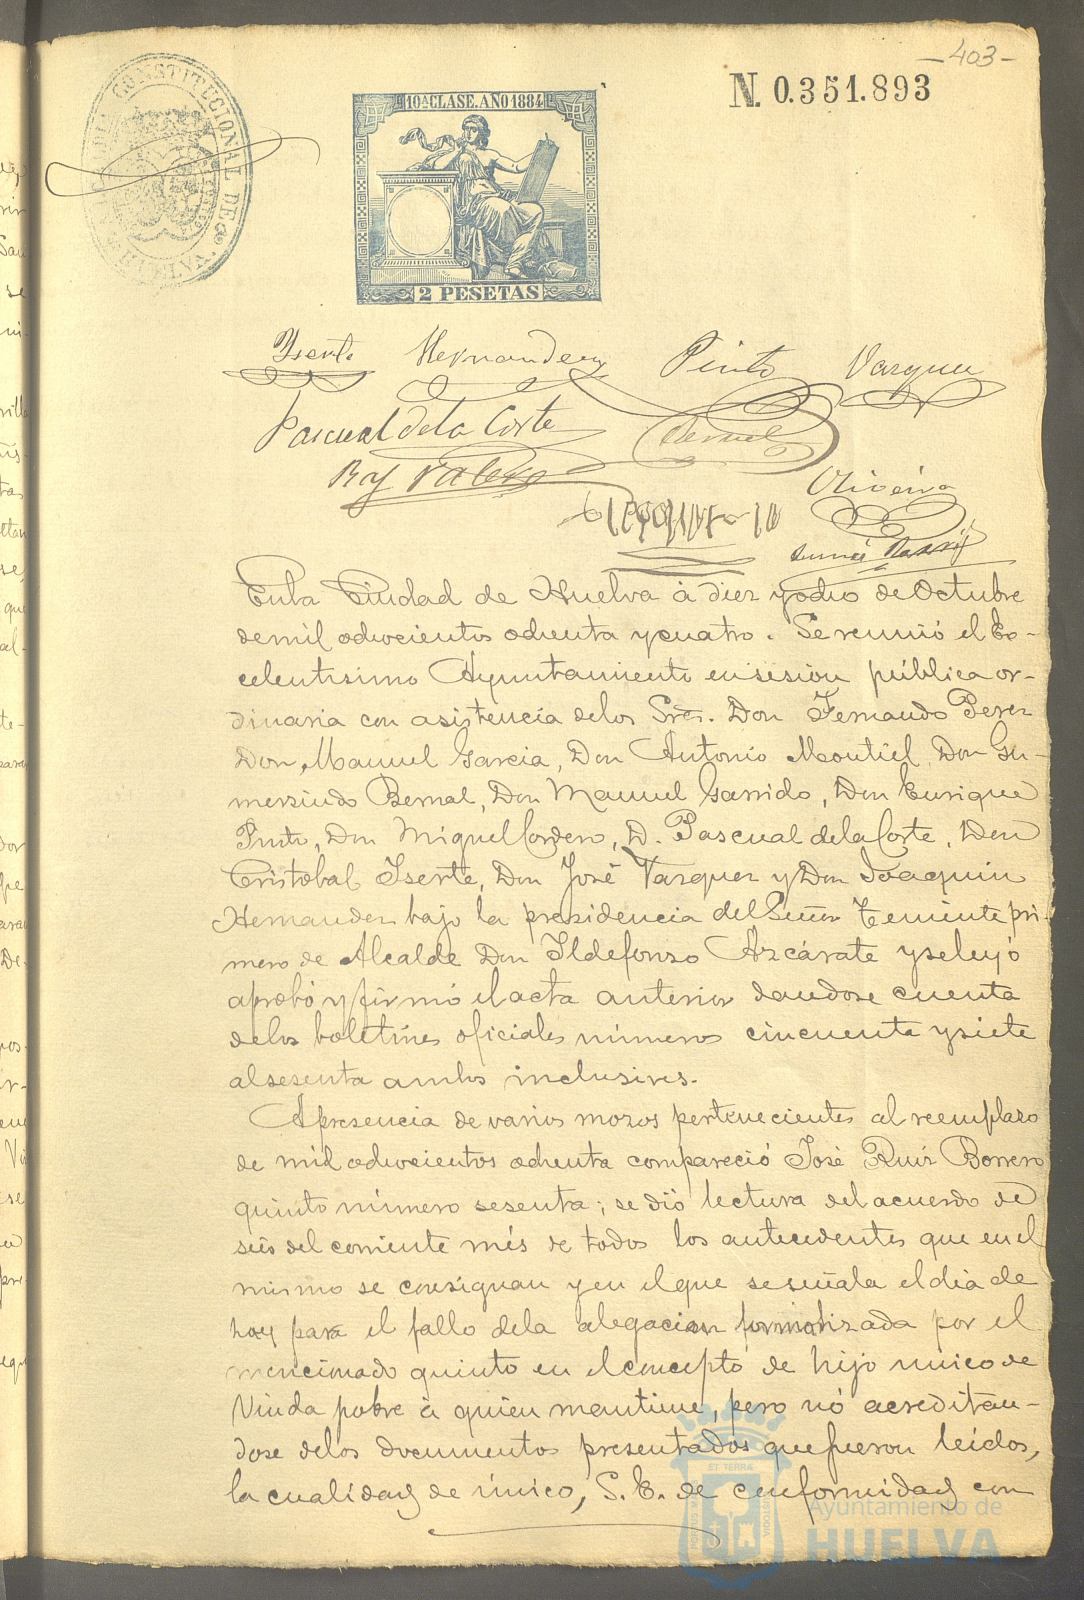 -403-
N. 0.351.893
ALCALDIA CONSTITUCIONAL DE HUELVA
10ª CLASE. AÑO 1884
2 PESETAS
Yserte Hernandez Pinto Vazquez
Pascual de la Corte Bernal
Oliveira
En la Ciudad de Huelva á diez y ocho de Octubre
de mil ochocientos ochenta y cuatro. Se reunió el Ex-
celentisimo Ayuntamiento en sesion pública or-
dinaria con asistencia de los Sres. Don Fernando Perez
Don Manuel Garcia, Don Antonio Montiel, Don Gu-
mersindo Bernal, Don Manuel Garrido, Don Enrique
Pinto, Don Miguel Cordero, D. Pascual de la Corte, Don
Cristobal Iserte, Don José Vazquez y Don Joaquin
Hernandez bajo la presidencia del Señor Teniente pri-
mero de Alcalde Don Ildefonso Azcárate y se leyó
aprobó y firmó el acta anterior dandose cuenta
de los boletines oficiales números cincuenta y siete
al sesenta ambos inclusives.
A presencia de varios mozos pertenecientes al reemplazo
de mil ochocientos ochenta compareció José Ruiz Borrero
quinto número sesenta; se dió lectura del acuerdo de
seis del corriente més de todos los antecedentes que en el
mismo se consignan y en el que se señala el dia de
hoy para el fallo de la alegacion formalizada por el
mencionado quinto en el concepto de hijo unico de
Viuda pobre á quien mantiene, pero nó acreditan-
dose de los documentos presentados que fueron leidos,
la cualidad de único, S. E. de conformidad con
Ayuntamiento de
HUELVA